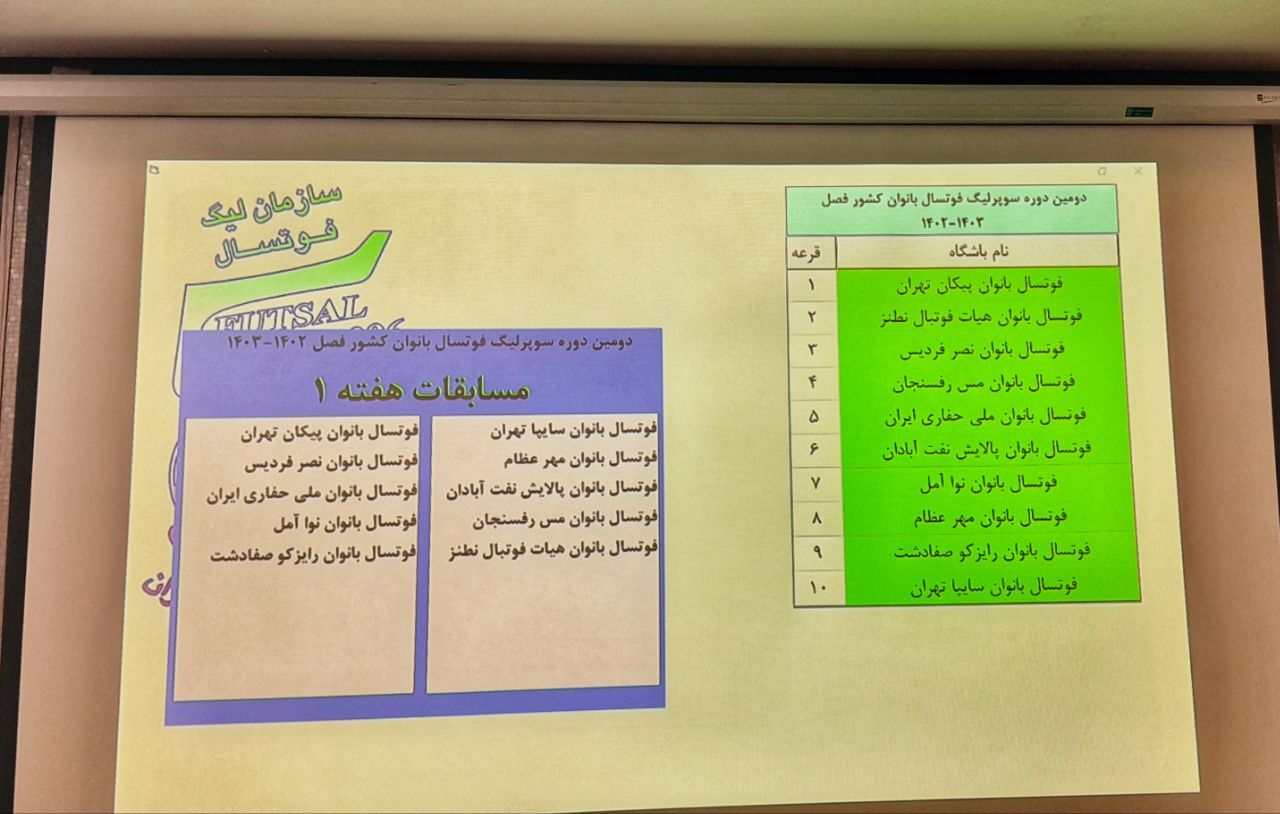 سازمان لیگ
فوتسال
FUTSAL
دومین دوره سوپرلیگ فوتسال بانوان کشور فصل
۱۴۰۲-۱۴۰۳
قرعه نام باشگاه
۱ فوتسال بانوان پیکان تهران
۲ فوتسال بانوان هیات فوتبال نطنز
۳ فوتسال بانوان نصر فردیس
۴ فوتسال بانوان مس رفسنجان
۵ فوتسال بانوان ملی حفاری ایران
۶ فوتسال بانوان پالایش نفت آبادان
۷ فوتسال بانوان نوا آمل
۸ فوتسال بانوان مهر عظام
۹ فوتسال بانوان رایزکو صفادشت
۱۰ فوتسال بانوان سایپا تهران
دومین دوره سوپرلیگ فوتسال بانوان کشور فصل ۱۴۰۲-۱۴۰۳
مسابقات هفته ۱
فوتسال بانوان سایپا تهران فوتسال بانوان پیکان تهران
فوتسال بانوان مهر عظام فوتسال بانوان نصر فردیس
فوتسال بانوان پالایش نفت آبادان فوتسال بانوان ملی حفاری ایران
فوتسال بانوان مس رفسنجان فوتسال بانوان نوا آمل
فوتسال بانوان هیات فوتبال نطنز فوتسال بانوان رایزکو صفادشت